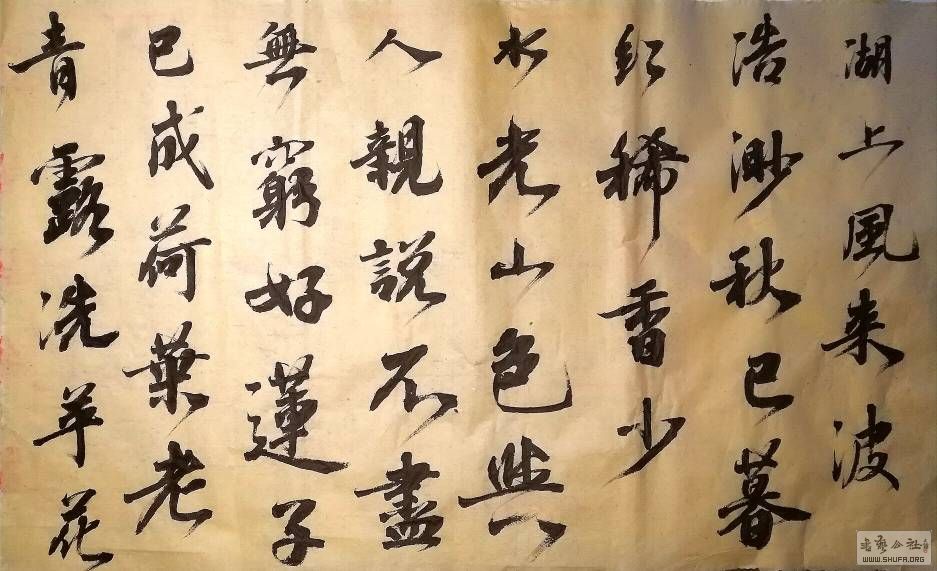 湖上風来波
浩渺秋已暮
紅稀香少
水光山色與
人親説不盡
無窮好蓮子
已成荷葉老
青露洗苹花
书艺公社
WWW.SHUFA.ORG